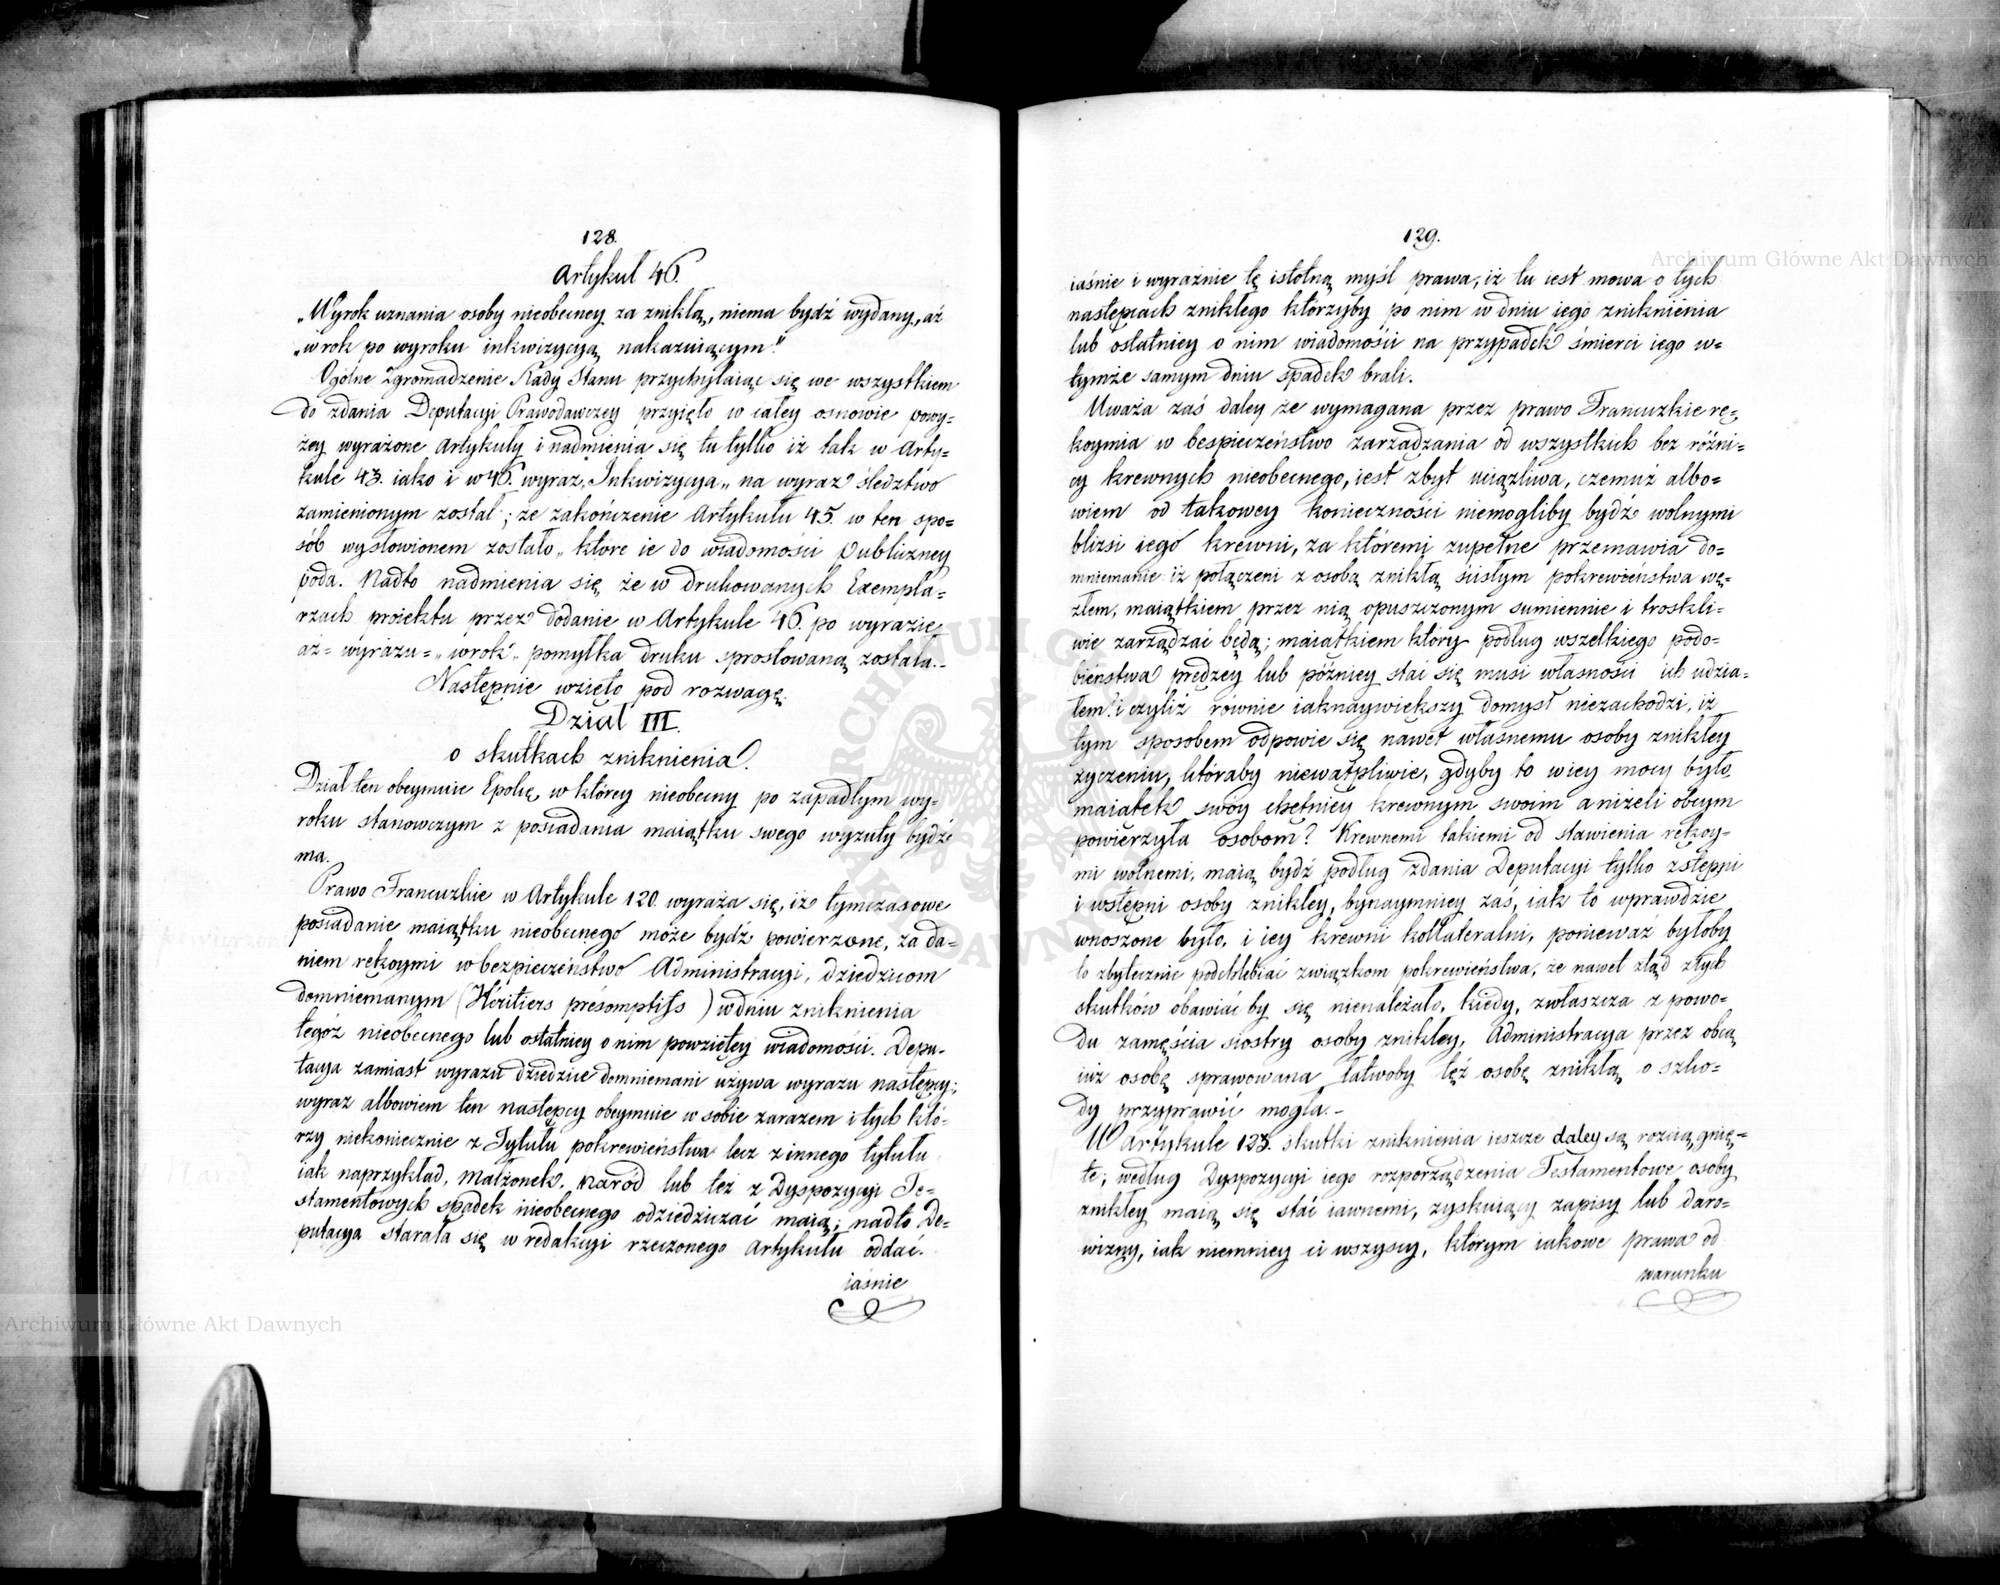 128.
Artykuł 46.
„Wyrok uznania osoby nieobecney za znikłą, niema bydź wydany, aż
„w rok po wyroku inkwizycyą nakazuiącym."
Ogólne Zgromadzenie Rady Stanu przychylaiąc się we wszystkiem
do zdania Deputacyi Prawodawczey przyięło w całey osnowie powy-
żey wyrażone Artykuły i nadmienia się tu tylko iż tak w Arty-
kule 43. iako i w 46. wyraz „Inkwizycya„ na wyraz śledztwo
zamienionym został; że zakończenie Artykułu 45. w ten spo=
sób wysłowionem zostało „które ie do wiadomości Publiczney
poda. Nadto nadmienia się że w drukowanych Exempla=
rzach proiektu przez dodanie w Artykule 46. po wyrazie
aż= wyrazu= „w rok„ pomyłka druku sprostowaną została.-
Następnie wzięto pod rozwagę.
Dział III.
o skutkach zniknienia.
Dział ten obeymuie Epokę, w którey nieobecny po zapadłym wy-
roku stanowczym z posiadania maiątku swego wyzuty bydź
ma.
Prawo Francuzkie w Artykule 120. wyraża się, iż tymczasowe
posiadanie maiątku nieobecnego może bydź powierzone, za da-
niem rękoymi w bezpieczeństwo Administracyi, dziedzicom
domniemanym (Héritiers présomptifs) w dniu zniknienia
tegóż nieobecnego lub ostatniey o nim powziętey wiadomości. Depu-
tacya zamiast wyrazu dziedzice domniemani używa wyrazu następcy;
wyraz albowiem ten następcy obeymuie w sobie zarazem i tych któ-
rzy niekoniecznie z Tytułu pokrewieństwa lecz z innego tytułu
iak naprzykład, Małżonek, Naród lub też z Dyspozycyi Te-
stamentowych spadek nieobecnego odziedziczać maią; nadto De-
putacya starała się w redakcyi rzeczonego Artykułu oddać.
iaśnie
129.
iaśnie i wyraźnie tę istotną myśl prawa, iż tu iest mowa o tych
następcach znikłego którzyby po nim w dniu iego zniknienia
lub ostatniey o nim wiadomości na przypadek śmierci iego w=
tymże samym dniu spadek brali.
Uważa zaś daley że wymagana przez prawo Francuzkie rę-
koymia w bespieczeństwo zarządzania od wszystkich bez różni-
cy krewnych nieobecnego, iest zbyt uciążliwa, czemuż albo=
wiem od takowey konieczności niemogliby bydź wolnymi
blizsi iego krewni, za któremi zupełne przemawia do=
mniemanie iż połączeni z osobą znikłą ścisłym pokrewieństwa wę-
złem, maiątkiem przez nią opuszczonym sumiennie i troskli-
wie zarządzać będą; maiątkiem który podług wszelkiego podo-
bieństwa prędzey lub późniey stać się musi własności ich udzia-
łem? i czyliż równie iaknaywiększy domysł niezachodzi, iż
tym sposobem odpowie się nawet własnemu osoby znikłey
życzeniu, któraby niewątpliwie, gdyby to w iey mocy było
maiątek swóy chętniey krewnym swoim aniżeli obcym
powierzyła osobom? Krewnemi takiemi od stawienia rękoy-
mi wolnemi, maią bydź podług zdania Deputacyi tylko zstępni
i wstępni osoby znikłey, bynaymniey zaś, iak to wprawdzie
wnoszone było, i iey krewni kollateralni, ponieważ byłoby
to zbytecznie podchlebiać związkom pokrewieństwa, że nawet ztąd złych
skutków obawiać by się nienależało, kiedy, zwłaszcza z powo-
du zamęścia siostry osoby znikłey, Administracya przez obcą
iuż osobę sprawowana łatwoby też osobę znikłą o szko-
dy przyprawić mogła.-
W artykule 123. skutki zniknienia ieszcze daley są rozciągnię-
te; według Dyspozycyi iego rozporządzenia Testamentowe osoby
znikłey maią się stać iawnemi, zyskuiący zapisy lub daro-
wizny, iak niemniey ci wszyscy, którym iakowe prawa od
warunku
Archiwum Główne Akt Dawnych
Archiwum Główne Akt Dawnych